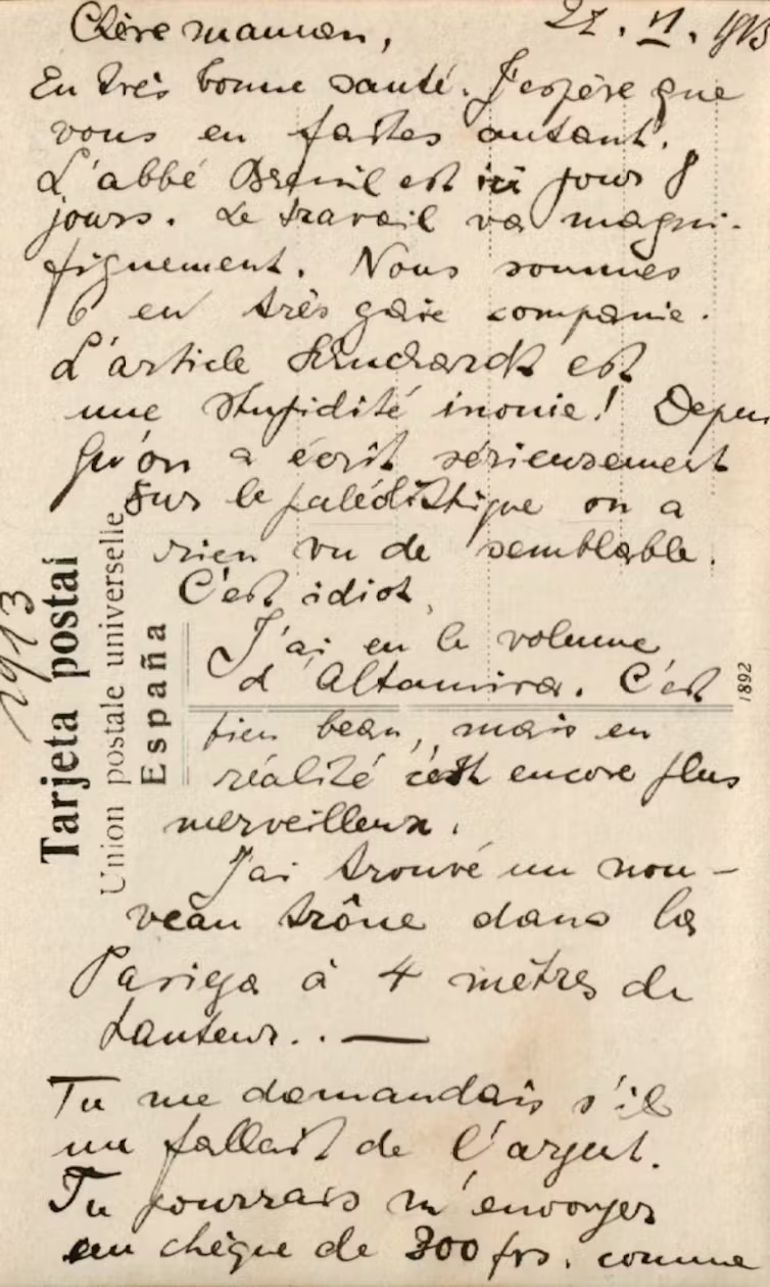 Chère maman,
27. VI. 1913
En très bonne santé. J'espère que
vous en faites autant.
L'abbé Breuil est ici pour 8
jours. Le travail va magni-
fiquement. Nous sommes
6 en très gaie companie.
L'article Schuchardt est
une stupidité inouie! Depuis
qu'on a écrit sérieusement
sur le paléolithique on a
rien vu de semblable.
C'est idiot.
J'ai eu le volume
d'Altamira. C'est
bien beau, mais en
réalité c'est encore plus
merveilleux.
J'ai trouvé un nou-
veau trône dans la
Pasiega à 4 mètres de
hauteur.. —
Tu me demandais s'il
me fallait de l'argent.
Tu pourrais m'envoyer
un chèque de 300 frs. comme
1913
Tarjeta postal
Union postale universelle
España
1892